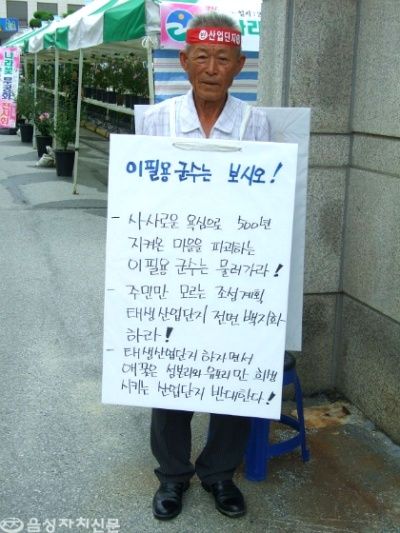 나라꽃 무궁화
산업단지
이필용 군수는 보시오!
- 사사로운 욕심으로 500년
지켜온 마을을 파괴하는
이필용 군수는 물러가라!
- 주민만 모르는 조성계획
태생산업단지 전면 백지화
하라!
- 태생산업단지 하자면서
애꽃은 성본리와 유포리만 희생
시키는 산업단지 반대한다!
음성자치신문